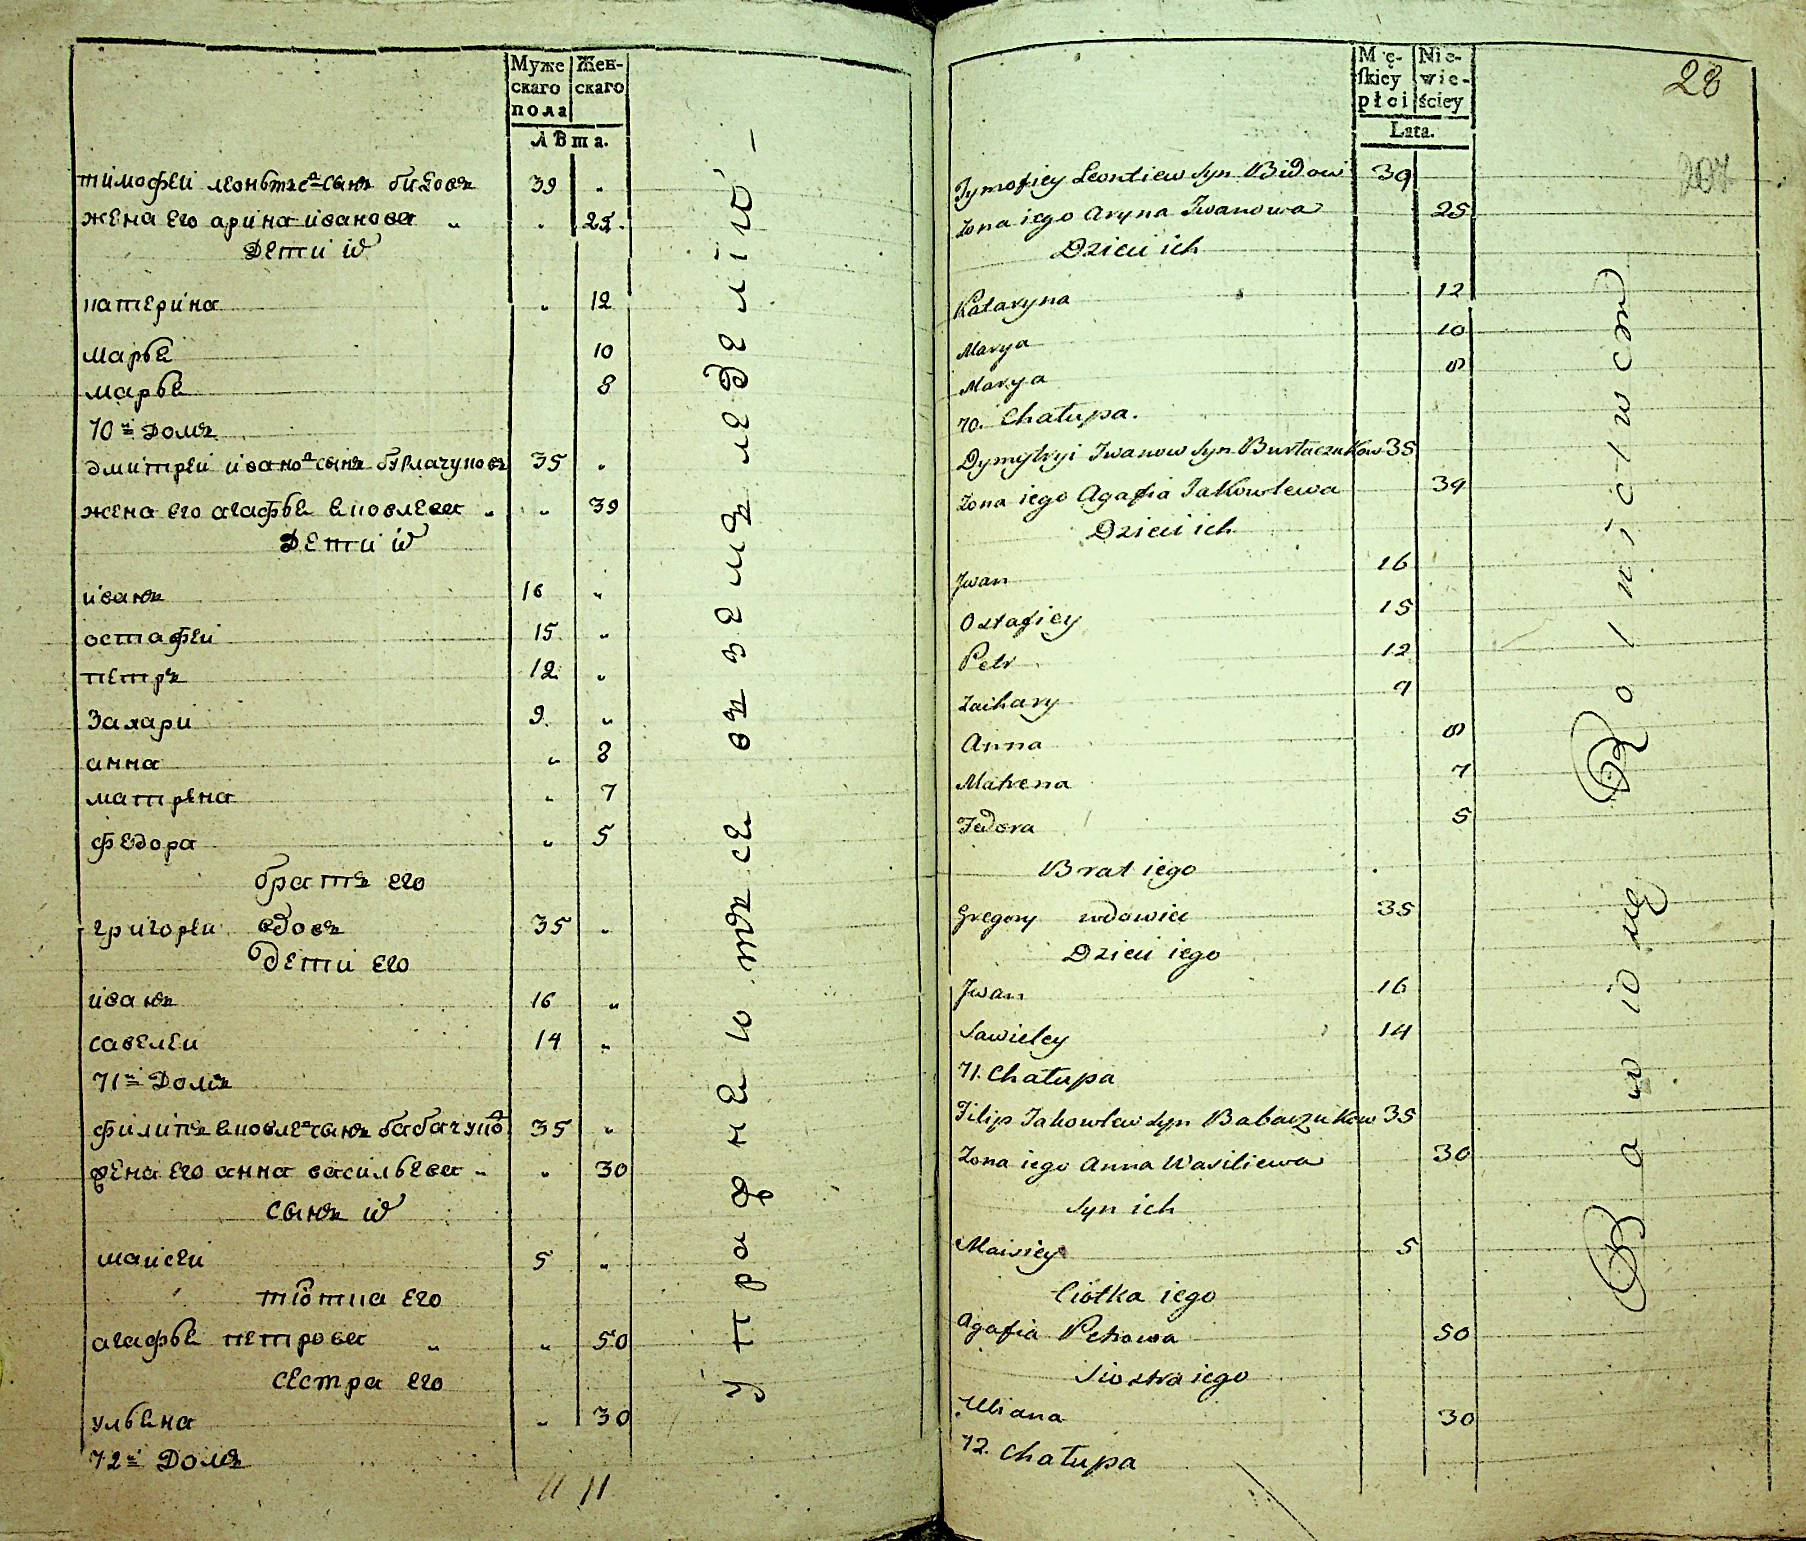 Муже
скаго
пола
Жен-
скаго
Лѣта.
тимофеи леонтьевъ сынъ бидовъ 39 „
жена его арина иванова „ „ 25.
дети их
катерина „ 12
марья 10
марья 8
70й домъ
дмитреи ивановъ сынъ бурлачуковъ 35 „
жена его агафья яковлева „ „ 39
дети их
иванъ 16 „
остафеи 15 „
петръ 12 „
Захари 9. „
анна „ 8
матрена „ 7
федора „ 5
братъ его
григореи вдовъ 35 „
дети его
иванъ 16 „
савелеи 14 „
71й домъ
филипъ яковлевъ сынъ бабачуков 35 „
жена его анна васильева „ „ 30
сынъ их
маисеи 5 „
тіотка его
агафья петрова „ „ 50
сестра его
ульяна „ 30
72й домъ
11 11
упражнеютъсе въ земледеліи
28
207
Mę-
skiey
płci
Nie-
wie-
ściey
Lata.
Tymofiey Leontiew syn Bidow 39
Zona iego Aryna Iwanowa 25
Dzieci ich
Kataryna 12
Marya 10
Marya 8
70. Chałupa.
Dymytryi Iwanow syn Burłaczukow 35
Zona iego Agafia Jakowlewa 39
Dzieci ich
Jwan 16
Ostafiey 15
Petr 12
Zachary 9
Anna 8
Matrena 7
Fedora 5
Brat iego
Gregory wdowiec 35
Dzieci iego
Jwan 16
Sawieley 14
71. Chałupa
Filip Jakowlew syn Babaczukow 35
Zona iego Anna Wasiliewa 30
Syn ich
Maisiey 5
Ciotka iego
Agafia Petrowa 50
Siostra iego
Uliana 30
72. Chałupa
Bawią się Rolnictwem